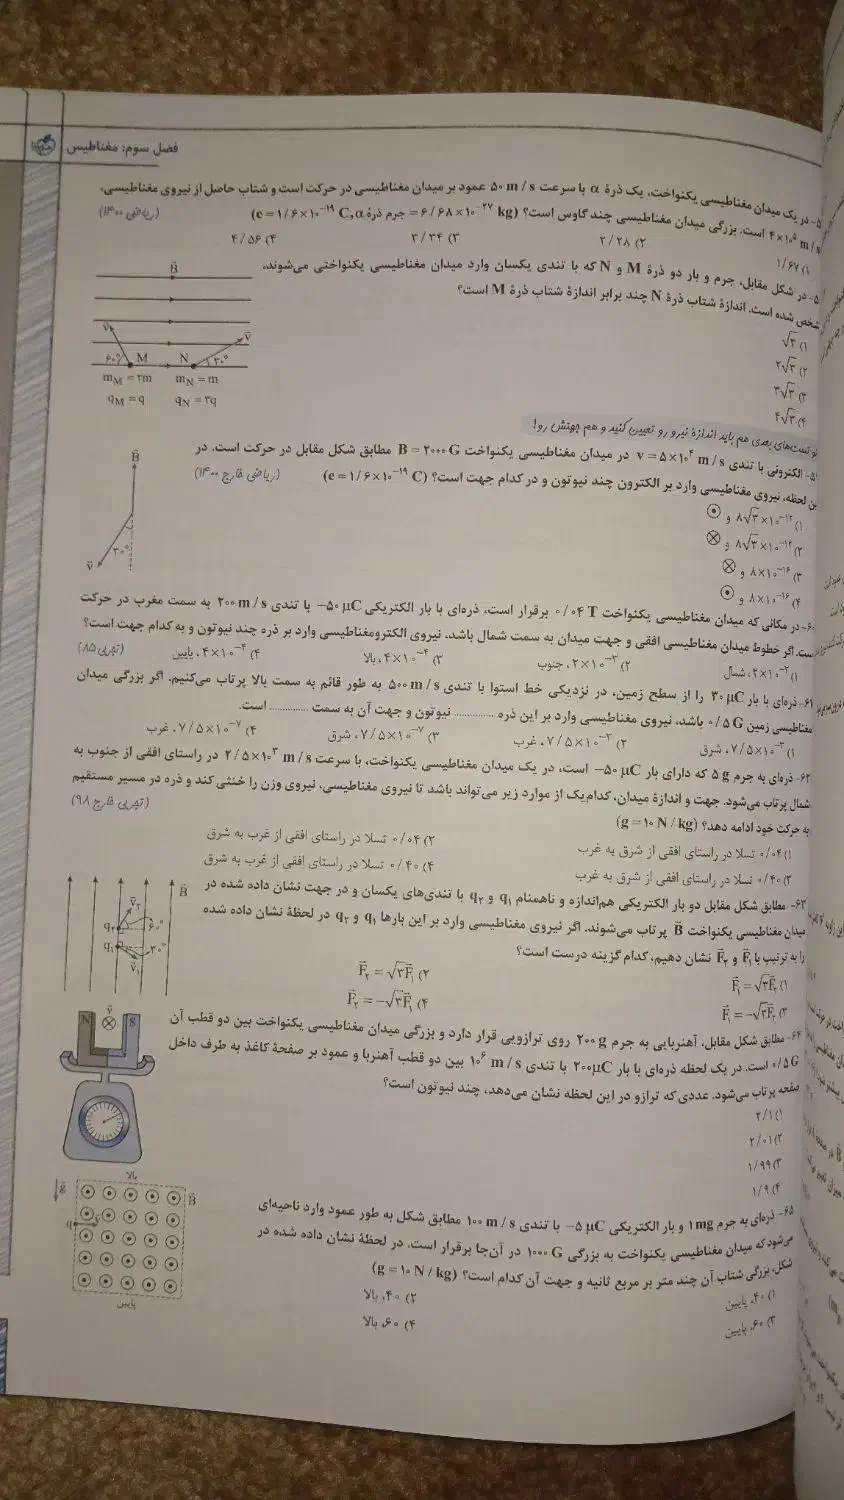 فصل سوم: مغناطیس
در یک میدان مغناطیسی یکنواخت، یک ذرهٔ α با سرعت ۵۰ m/s عمود بر میدان مغناطیسی در حرکت است و شتاب حاصل از نیروی مغناطیسی،
۴×۱۰⁵ m/s است. بزرگی میدان مغناطیسی چند گاوس است؟ (۶/۶۸×۱۰⁻²⁷ kg = جرم ذرهٔ α, e = ۱/۶×۱۰⁻¹⁹ C) (ریاضی ۱۴۰۰)
۱) ۱/۶۷ ۲) ۲/۲۸ ۳) ۳/۳۴ ۴) ۴/۵۶
در شکل مقابل، جرم و بار دو ذرهٔ M و N که با تندی یکسان وارد میدان مغناطیسی یکنواختی می‌شوند،
مشخص شده است. اندازهٔ شتاب ذرهٔ N چند برابر اندازهٔ شتاب ذرهٔ M است؟
۱) √۳
۲) ۲√۳
۳) ۳√۳
۴) ۴√۳
B
v v
۶۰° M N ۳۰°
m_M = ۳m m_N = m
q_M = q q_N = ۳q
تو تست‌های بعدی هم باید اندازهٔ نیرو رو تعیین کنید و هم جهتش رو!
الکترونی با تندی v = ۵×۱۰⁴ m/s در میدان مغناطیسی یکنواخت B = ۲۰۰۰ G مطابق شکل مقابل در حرکت است. در
این لحظه، نیروی مغناطیسی وارد بر الکترون چند نیوتون و در کدام جهت است؟ (e = ۱/۶×۱۰⁻¹⁹ C) (ریاضی خارج ۱۴۰۰)
۱) ۸√۳×۱۰⁻¹² و ⊙
۲) ۸√۳×۱۰⁻¹² و ⊗
۳) ۸×۱۰⁻¹⁶ و ⊗
۴) ۸×۱۰⁻¹⁶ و ⊙
B
۳۰°
v
۶۰- در مکانی که میدان مغناطیسی یکنواخت ۰/۰۴ T برقرار است، ذره‌ای با بار الکتریکی ‎−۵۰ μC با تندی ۲۰۰ m/s به سمت مغرب در حرکت
است. اگر خطوط میدان مغناطیسی افقی و جهت میدان به سمت شمال باشد، نیروی الکترومغناطیسی وارد بر ذره چند نیوتون و به کدام جهت است؟
۱) ۲×۱۰⁻²، شمال ۲) ۲×۱۰⁻³، جنوب ۳) ۴×۱۰⁻⁴، بالا ۴) ۴×۱۰⁻⁴، پایین (تجربی ۸۵)
۶۱- ذره‌ای با بار ۳۰ μC را از سطح زمین، در نزدیکی خط استوا با تندی ۵۰۰ m/s به طور قائم به سمت بالا پرتاب می‌کنیم. اگر بزرگی میدان
مغناطیسی زمین ۰/۵ G باشد، نیروی مغناطیسی وارد بر این ذره .............. نیوتون و جهت آن به سمت .............. است.
۱) ۷/۵×۱۰⁻³، شرق ۲) ۷/۵×۱۰⁻³، غرب ۳) ۷/۵×۱۰⁻⁷، شرق ۴) ۷/۵×۱۰⁻⁷، غرب
۶۲- ذره‌ای به جرم ۵ g که دارای بار ‎−۵۰ μC است، در یک میدان مغناطیسی یکنواخت، با سرعت ۲/۵×۱۰³ m/s در راستای افقی از جنوب به
شمال پرتاب می‌شود. جهت و اندازهٔ میدان، کدام‌یک از موارد زیر می‌تواند باشد تا نیروی مغناطیسی، نیروی وزن را خنثی کند و ذره در مسیر مستقیم
به حرکت خود ادامه دهد؟ (g = ۱۰ N/kg) (تجربی خارج ۹۸)
۱) ۰/۰۴ تسلا در راستای افقی از شرق به غرب ۲) ۰/۰۴ تسلا در راستای افقی از غرب به شرق
۳) ۰/۴۰ تسلا در راستای افقی از شرق به غرب ۴) ۰/۴۰ تسلا در راستای افقی از غرب به شرق
۶۳- مطابق شکل مقابل دو بار الکتریکی هم‌اندازه و ناهمنام q₁ و q₂ با تندی‌های یکسان و در جهت نشان داده شده در
میدان مغناطیسی یکنواخت B پرتاب می‌شوند. اگر نیروی مغناطیسی وارد بر این بارها q₁ و q₂ در لحظهٔ نشان داده شده
را به ترتیب با F₁ و F₂ نشان دهیم، کدام گزینه درست است؟
۱) F₁ = √۳F₂ ۲) F₂ = √۳F₁
۳) F₁ = −√۳F₂ ۴) F₂ = −√۳F₁
B
v₂
q₂ ۶۰°
q₁ ۳۰°
v₁
۶۴- مطابق شکل مقابل، آهنربایی به جرم ۲۰۰ g روی ترازویی قرار دارد و بزرگی میدان مغناطیسی یکنواخت بین دو قطب آن
۰/۵ G است. در یک لحظه ذره‌ای با بار ۲۰۰ μC با تندی ۱۰⁶ m/s بین دو قطب آهنربا و عمود بر صفحهٔ کاغذ به طرف داخل
صفحه پرتاب می‌شود. عددی که ترازو در این لحظه نشان می‌دهد، چند نیوتون است؟
۱) ۲/۱
۲) ۲/۰۱
۳) ۱/۹۹
۴) ۱/۹
N v S
۶۵- ذره‌ای به جرم ۱ mg و بار الکتریکی ‎−۵ μC با تندی ۱۰۰ m/s مطابق شکل به طور عمود وارد ناحیه‌ای
می‌شود که میدان مغناطیسی یکنواخت به بزرگی ۱۰۰۰ G در آن‌جا برقرار است. در لحظهٔ نشان داده شده در
شکل، بزرگی شتاب آن چند متر بر مربع ثانیه و جهت آن کدام است؟ (g = ۱۰ N/kg)
۱) ۴۰، پایین ۲) ۴۰، بالا
۳) ۶۰، پایین ۴) ۶۰، بالا
بالا
g B
q v
پایین